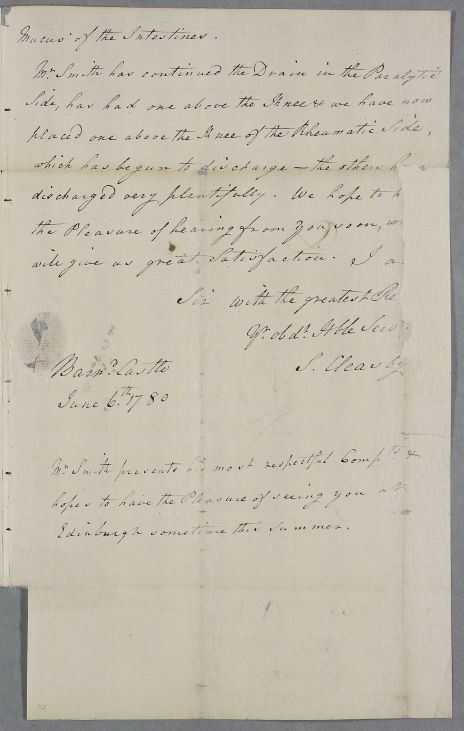 Mucus of the Intestines.
Mr. Smith has continued the Drain in the Paralytic
Side, has had one above the Knee & we have now
placed one above the Knee of the Rheumatic Side,
which has begun to discharge – the others h
discharged very plentifully. We hope to h
the Pleasure of hearing from you soon, w
will give us great Satisfaction. I a
Sir with the greatest Re
Yr. obdt. Hble Ser
S. Cleasby
Barnd. Castle
June 6th. 1780
Mr. Smith presents his most respectful Compts. &
hopes to have the Pleasure of seeing you at
Edinburgh sometime this Summer.